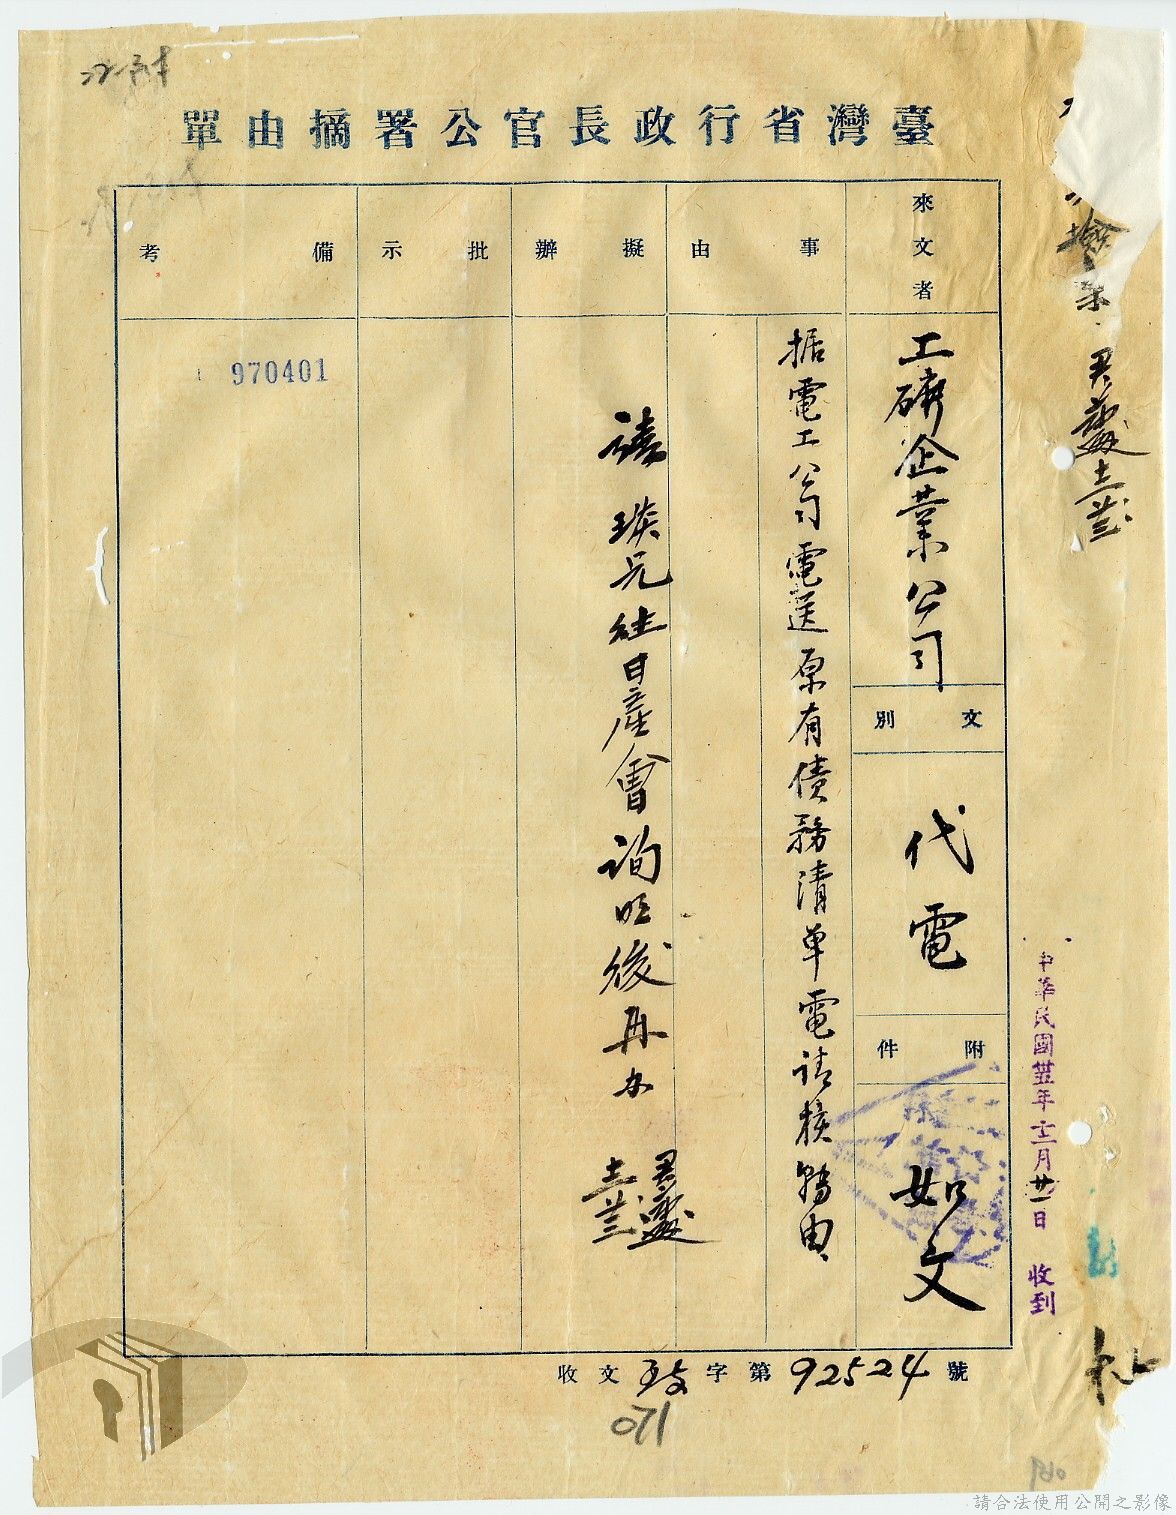 臺灣省行政長官公署摘由單
來文者
工礦企業公司
文別
代電
附件
如文
事由
据電工公司電送原有債務清單電請核轉由
擬辦
請 琰兄往日產會詢明後再办
批示
備考
970401
收文 字第92524號
071
中華民國卅五年十二月廿一日 收到
請合法使用公開之影像